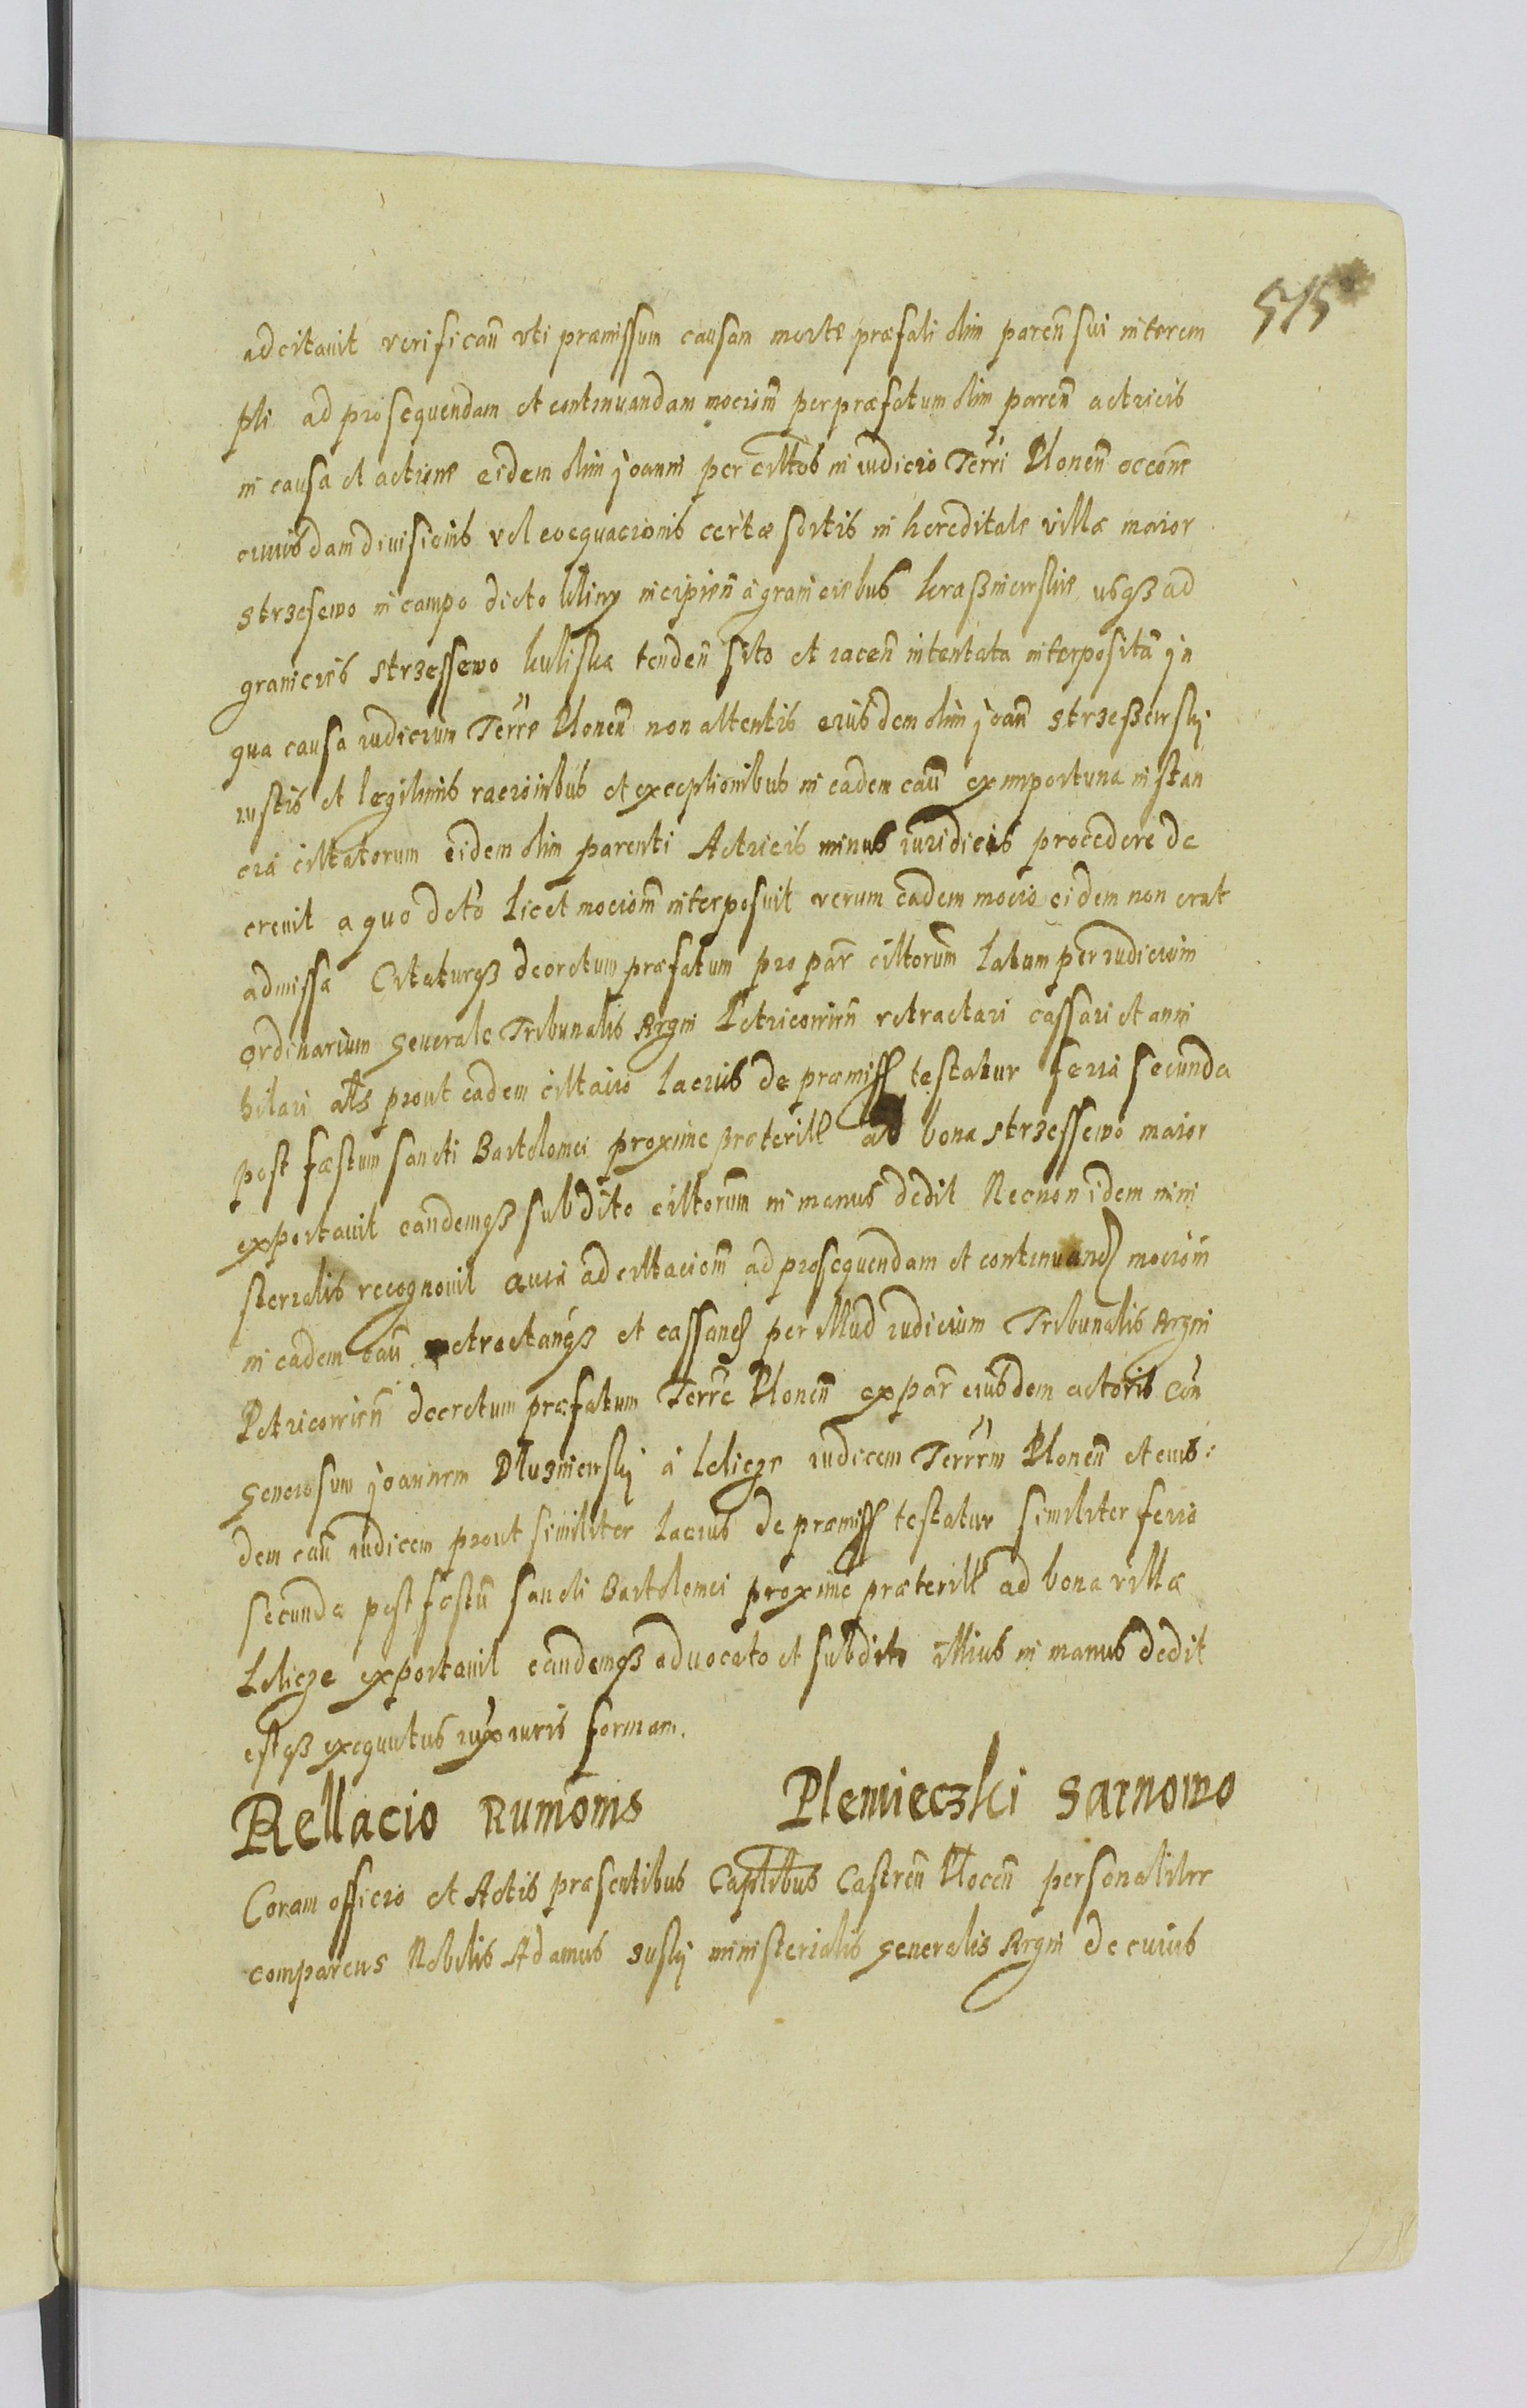 515
adcitavit verifican̄ uti præmissum causam mortæ præfati olim paren̄ sui interem
pti ad prosequendam et continuandam mocion̄ per præfatum olim paren̄ actricis
in causa et actione eidem olim joanni per cittos in iudicio Terri Plonen̄ occōne
cuiusdam divisionis vel eoequacionis certæ sortis in hereditate villæ maior
strzesewo in campo dicto Kliny incipien̄ a graniciebus kraßniewskie usqß ad
granicies strzessewo kuliska tenden̄ sito et iacen̄ intentata interpositā in
qua causa iudicium Terre Plonen̄ non attentis eiusdem olim joan̄ strzeßewskj
iustis et legitimis racionibus et exceptionibus in eadem cau̅ ex importuna instan
cia cittatorum eidem olim parenti Actricis minus iuridicis procedere de
crevit a quo dcto licet mociom̄ interposuit verum eadem mocio eidem non erat
admissa Citaturqß decretum præfatum pro par̄ cittorum̄ latum per iudicium
ordinarium generale Tribunalis Regni Petricovien̄ retractari cassari et anni
hilari alt̄s prout eadem cittatio lacius de præmiss testatur feria secunda
post fæstum sancti Bartolomei proxime præterit ad bona strzessewo maior
exportavit eandemqß subdito cittorum̄ in manus dedit Necnon idem mini
sterialis recognovit quia adcittaciom̄ ad prosequendam et continuand mociom̄
in eadem cau̅ retractanqß et cassand per illud iudicium Tribunalis Regni
Petricovien̄ decretum præfatum Terre Plonen̄ ex par̄ eiusdem actoris con̄
generosum joannem Dłuzniewskj a Lelicze iudicem Terrem Plonen̄ et eius:
dem cau̅ iudicem prout similiter lacius de præmiss testatur similiter feria
secunda post fæstū sancti Bartolomei proxime præterit ad bona villæ
Lelicze exportavit eandemqß advocato et subdito illius in manus dedit
estqß exequutus iux iuris formam.
Rellacio Rumōnis Plemieczki Sarnowo
Coram officio et Actis præsentibus Captlibus Castren̄ Plocen̄ personaliter
comparens Nobilis Adamus suskj ministerialis generalis Regni de cuius